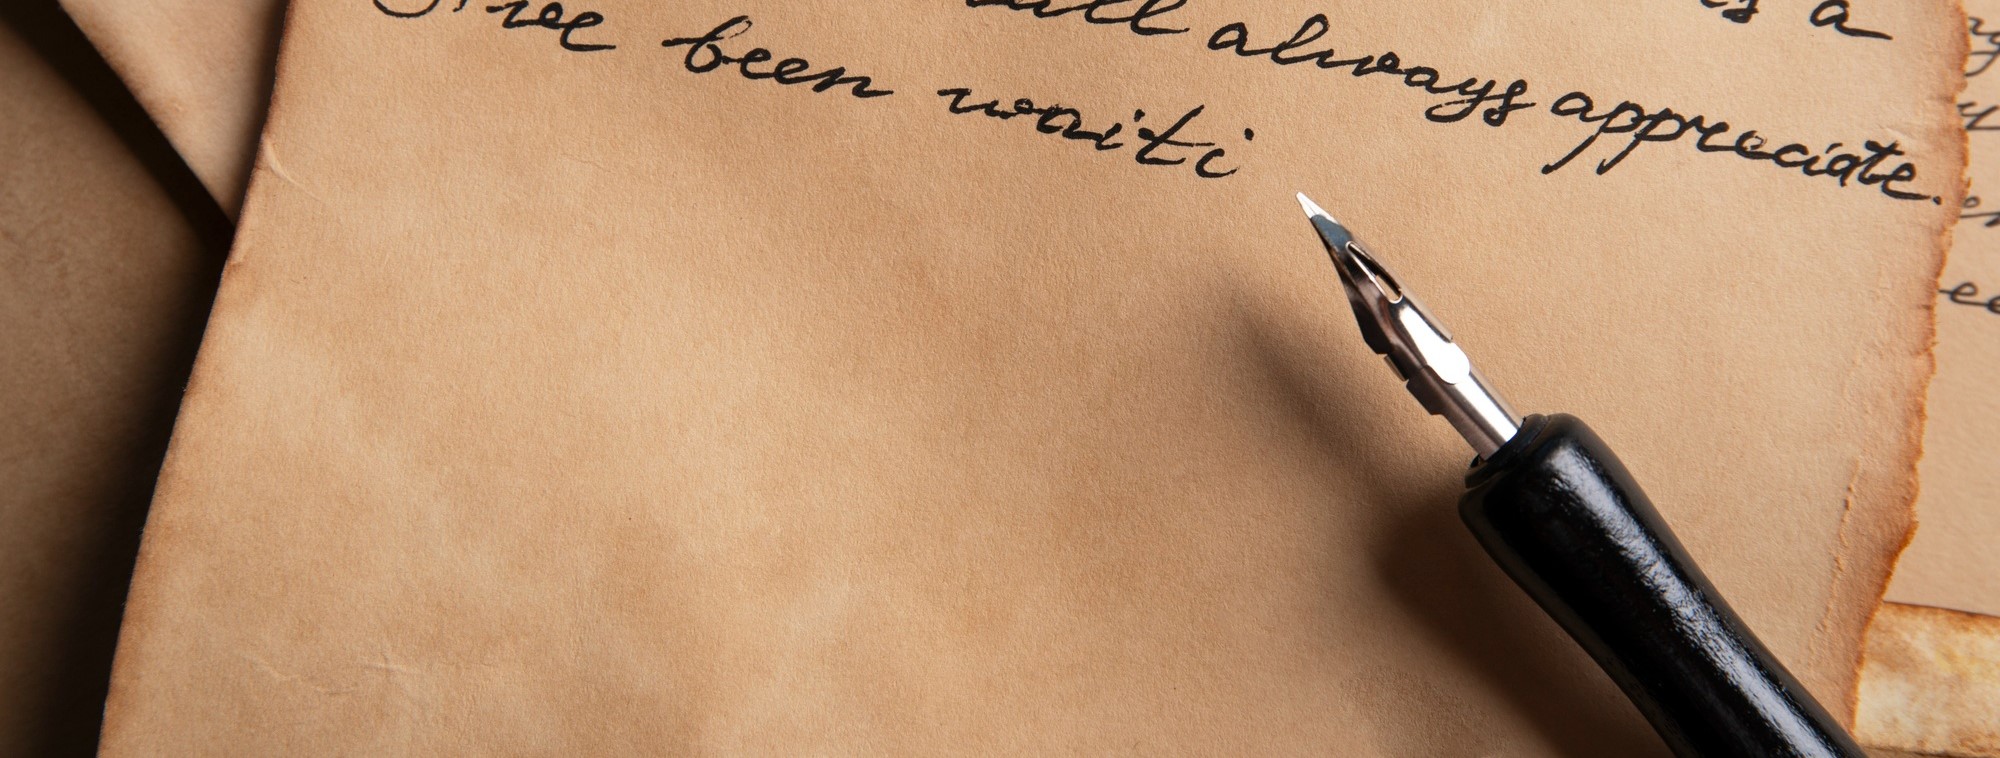 is a
will always appreciate.
I've been waiti